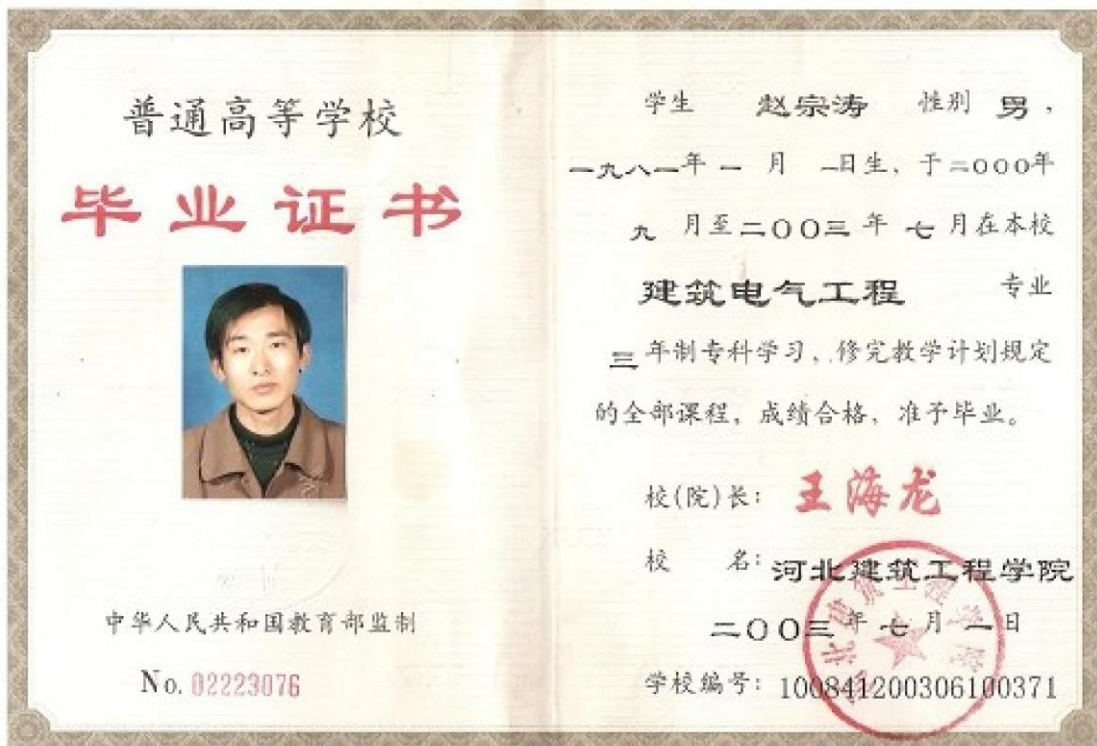 普通高等学校
毕业证书
中华人民共和国教育部监制
No. 02223076
学生 赵宗涛 性别 男,
一九八一年 一 月 一日生, 于二000年
九 月至二00三 年 七 月在本校
建筑电气工程 专业
三 年制专科学习, 修完教学计划规定
的全部课程, 成绩合格, 准予毕业。
校(院)长: 王海龙
校 名: 河北建筑工程学院
二00三 年 七 月 一日
学校编号: 100841200306100371
河北建筑工程学院